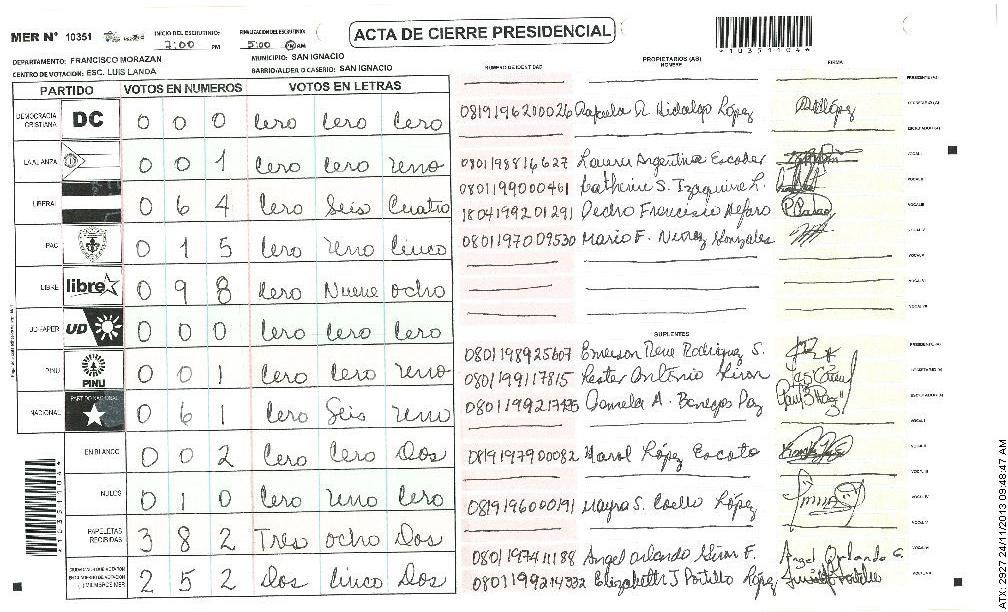 MER N° 10351
INICIO DEL ESCRUTINIO: 7:00 PM
FINALIZACION DEL ESCRUTINIO: 5:00 PM AM
ACTA DE CIERRE PRESIDENCIAL
*10351104*
DEPARTAMENTO: FRANCISCO MORAZAN
MUNICIPIO: SAN IGNACIO
CENTRO DE VOTACION: ESC. LUIS LANDA
BARRIO/ALDEA O CASERIO: SAN IGNACIO
PARTIDO VOTOS EN NUMEROS VOTOS EN LETRAS
DEMOCRACIA CRISTIANA DC 0 0 0 Cero Cero Cero
LA ALIANZA 0 0 1 Cero Cero Uno
LIBERAL 0 6 4 Cero Seis Cuatro
PAC 0 1 5 Cero Uno Cinco
LIBRE libre 0 9 8 Cero Nueve Ocho
UD-FAPER UD 0 0 0 Cero Cero Cero
PINU PINU 0 0 1 Cero Cero Uno
NACIONAL PARTIDO NACIONAL 0 6 1 Cero Seis Uno
EN BLANCO 0 0 2 Cero Cero Dos
NULOS 0 1 0 Cero Uno Cero
PAPELETAS RECIBIDAS 3 8 2 Tres Ocho Dos
2 5 2 Dos Cinco Dos
*10351104*
NUMERO DE IDENTIDAD PROPIETARIOS (AS) NOMBRE FIRMA
PRESIDENTE (A)
0819196200026 Rafaela R. Hidalgo López SECRETARIO (A)
ESCRUTADOR (A)
0801198816627 Laura Argentina Escober VOCAL I
0801199000461 Katherine S. Izaguirre L. VOCAL II
1804199201291 Pedro Francisco Alfaro VOCAL III
0801197009530 Mario F. Nuñez Gonzales VOCAL IV
VOCAL V
VOCAL VI
VOCAL VII
SUPLENTES
0801198925607 Emerson Rene Rodriguez S. PRESIDENTE (A)
0801199117815 Lester Antonio Giron SECRETARIO (A)
Daniela A. Banegas Paz ESCRUTADOR (A)
VOCAL I
0819197900082 Marol López Escoto VOCAL II
VOCAL III
0819196000191 Mayra S. Coello López VOCAL IV
VOCAL V
0801197411188 Angel Orlando Giron F. VOCAL VI
0801199214332 Elizabeth J Portillo López VOCAL VII
ATX-2927 24/11/2013 09:48:47 AM